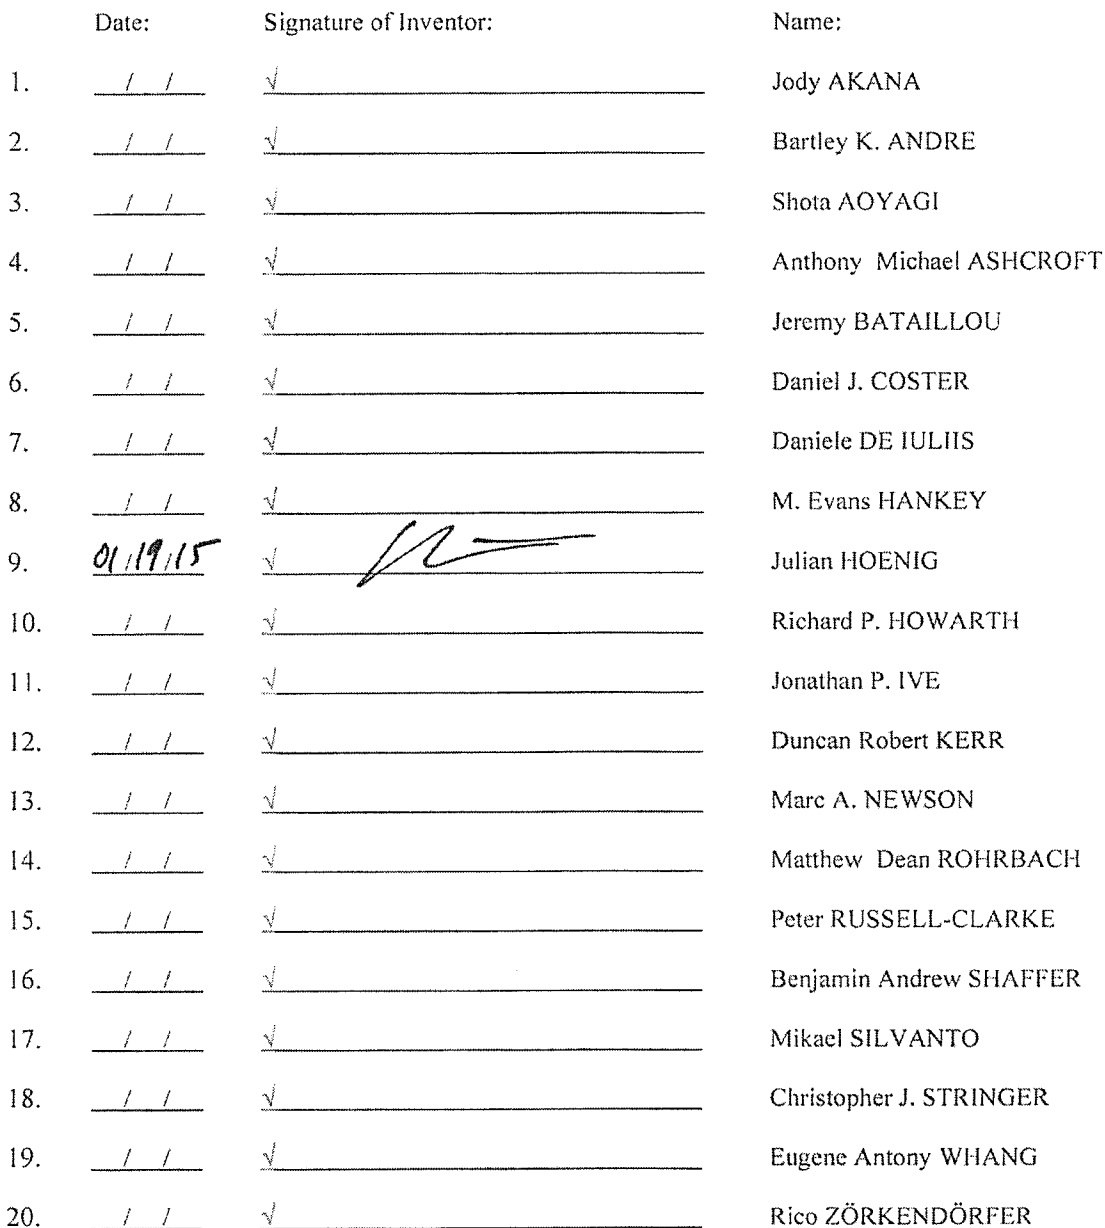 Date: Signature of Inventor: Name:
1. / / √ Jody AKANA
2. / / √ Bartley K. ANDRE
3. / / √ Shota AOYAGI
4. / / √ Anthony Michael ASHCROFT
5. / / √ Jeremy BATAILLOU
6. / / √ Daniel J. COSTER
7. / / √ Daniele DE IULIIS
8. / / √ M. Evans HANKEY
9. 01/19/15 √ Julian HOENIG
10. / / √ Richard P. HOWARTH
11. / / √ Jonathan P. IVE
12. / / √ Duncan Robert KERR
13. / / √ Marc A. NEWSON
14. / / √ Matthew Dean ROHRBACH
15. / / √ Peter RUSSELL-CLARKE
16. / / √ Benjamin Andrew SHAFFER
17. / / √ Mikael SILVANTO
18. / / √ Christopher J. STRINGER
19. / / √ Eugene Antony WHANG
20. / / √ Rico ZÖRKENDÖRFER